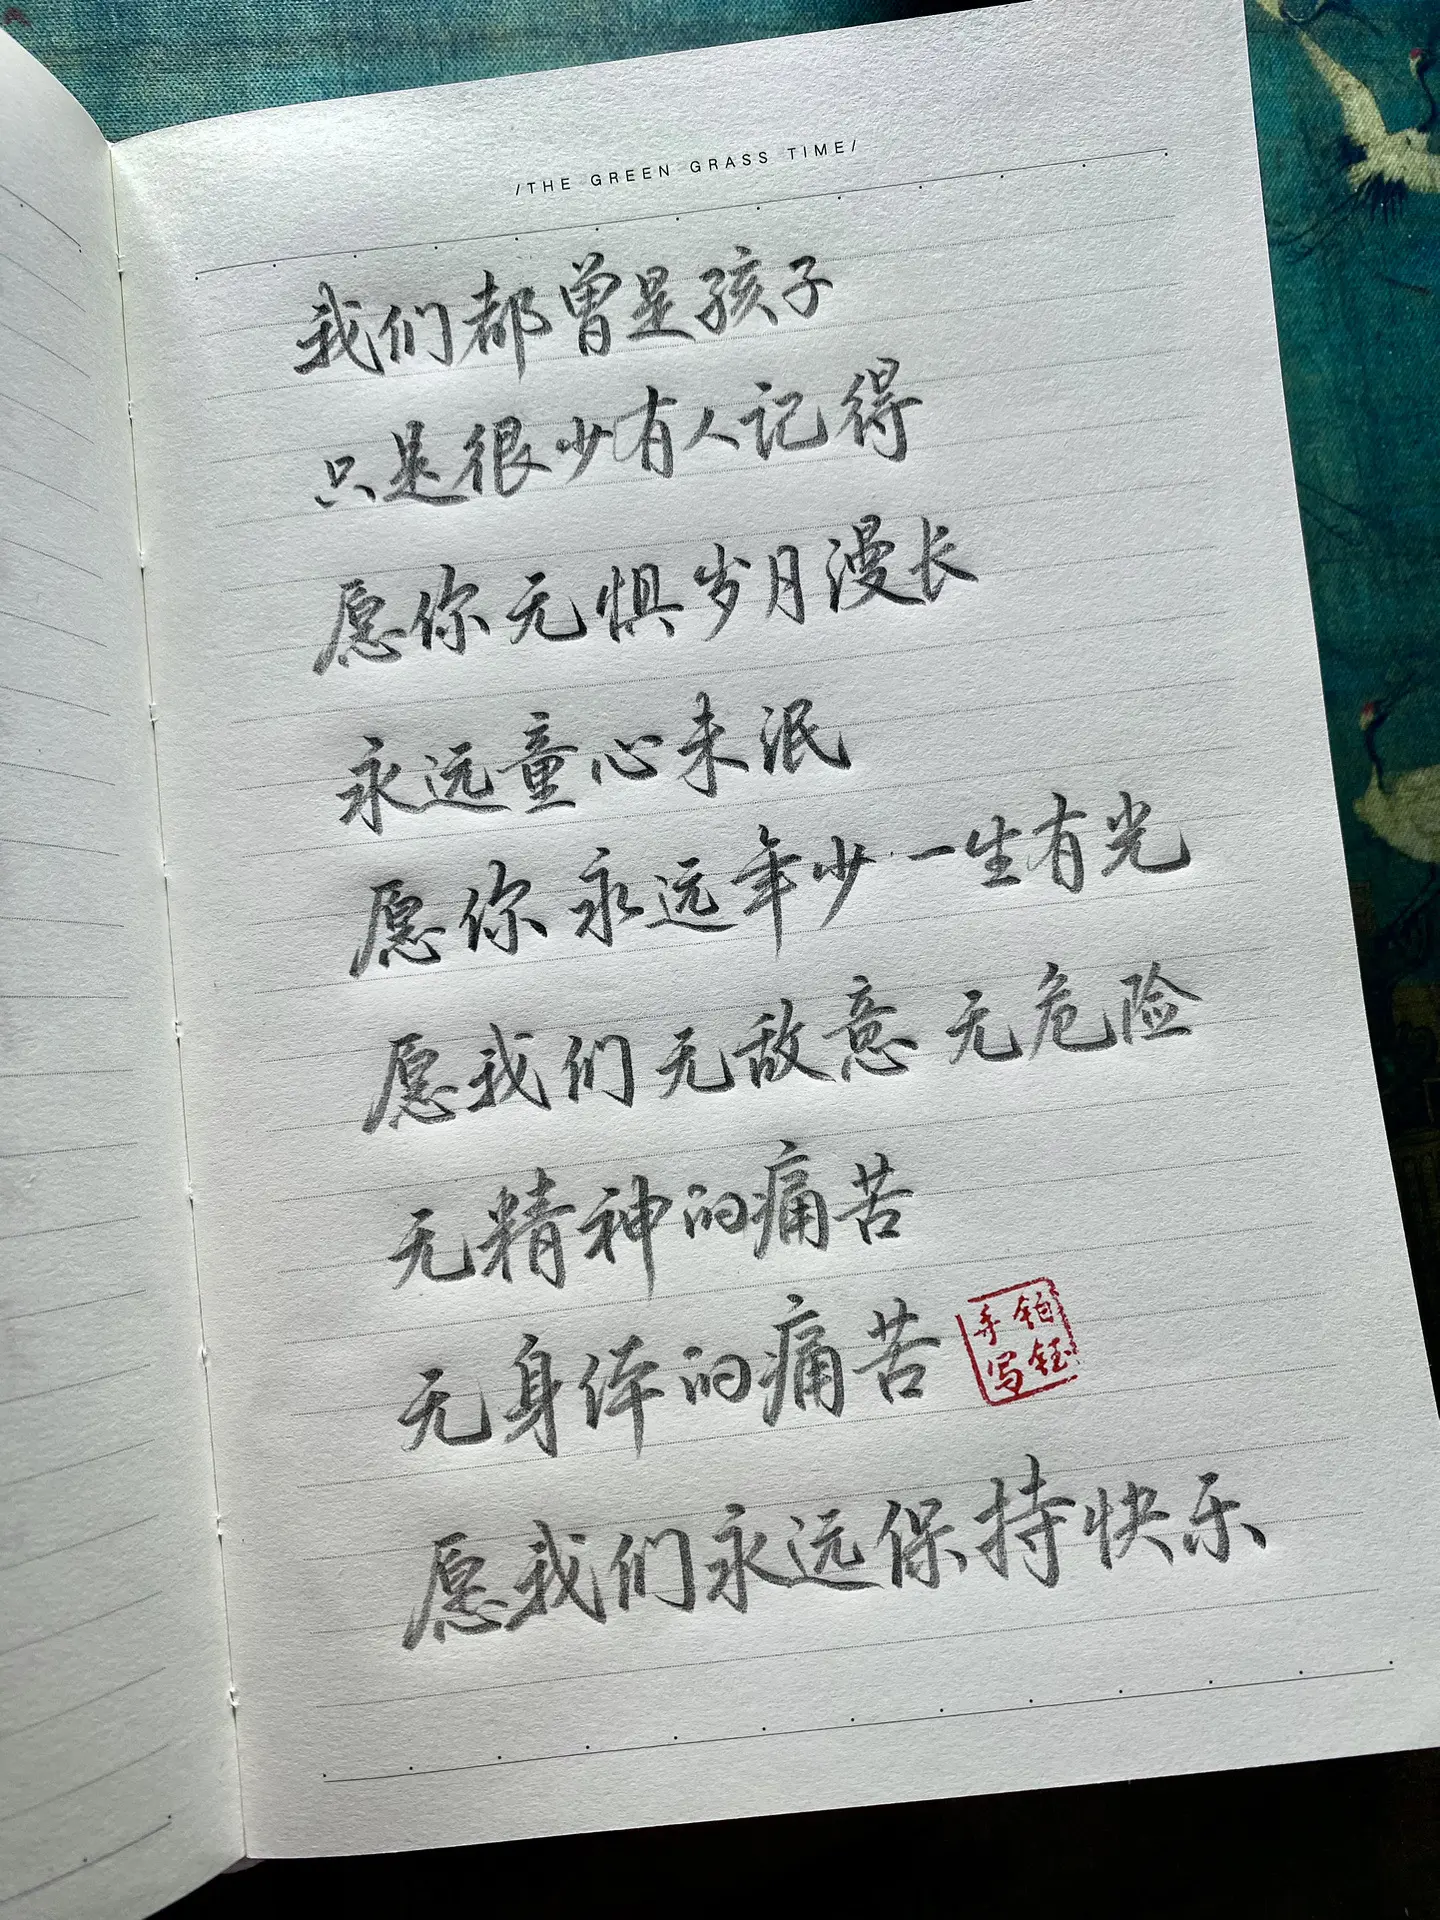 /THE GREEN GRASS TIME/
我们都曾是孩子
只是很少有人记得
愿你无惧岁月漫长
永远童心未泯
愿你永远年少一生有光
愿我们无敌意无危险
无精神的痛苦
无身体的痛苦
铂钰
手写
愿我们永远保持快乐